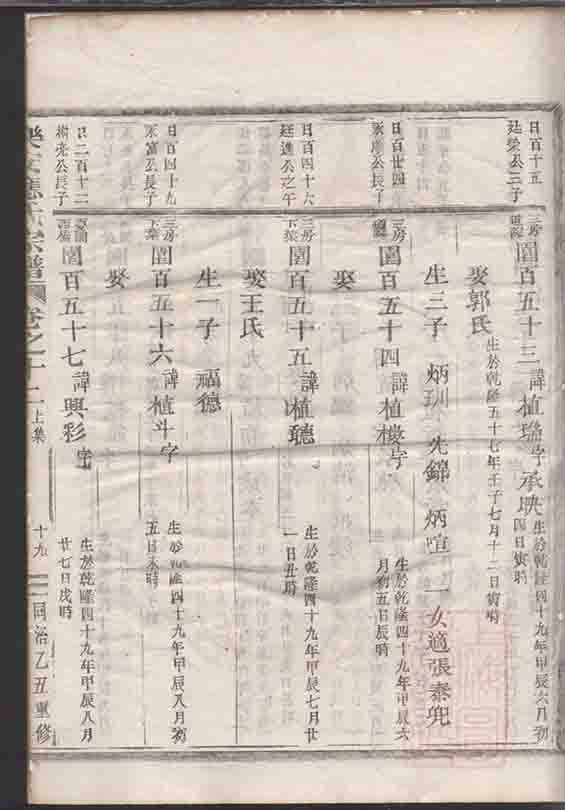 日百十五
廷榮公三子
三房
圍百五十三 諱植瑤字承映 生於乾隆四十九年甲辰六月初四日寅時
娶郭氏 生於乾隆五十七年壬子七月十二日寅時
生三子 炳玔 先錦 炳喧 一女適張泰兜
日百廿四
永 公長子
三房
圍百五十四 諱植樓字 生於乾隆四十九年甲辰六月初五日辰時
娶
日百四十六
廷進公之子
三房下葉
圍百五十五 諱植聽 生於乾隆四十九年甲辰七月廿一日丑時
娶王氏
生一子 福德
日百四十九
永富公長子
三房下葉
圍百五十六 諱植斗字 生於乾隆四十九年甲辰八月初五日未時
娶
日二百十二
公長子
圍百五十七 諱興彩字 生於乾隆四十九年甲辰八月廿七日戌時
樂安 氏宗譜 卷之十二上集 十九 同治乙丑重修